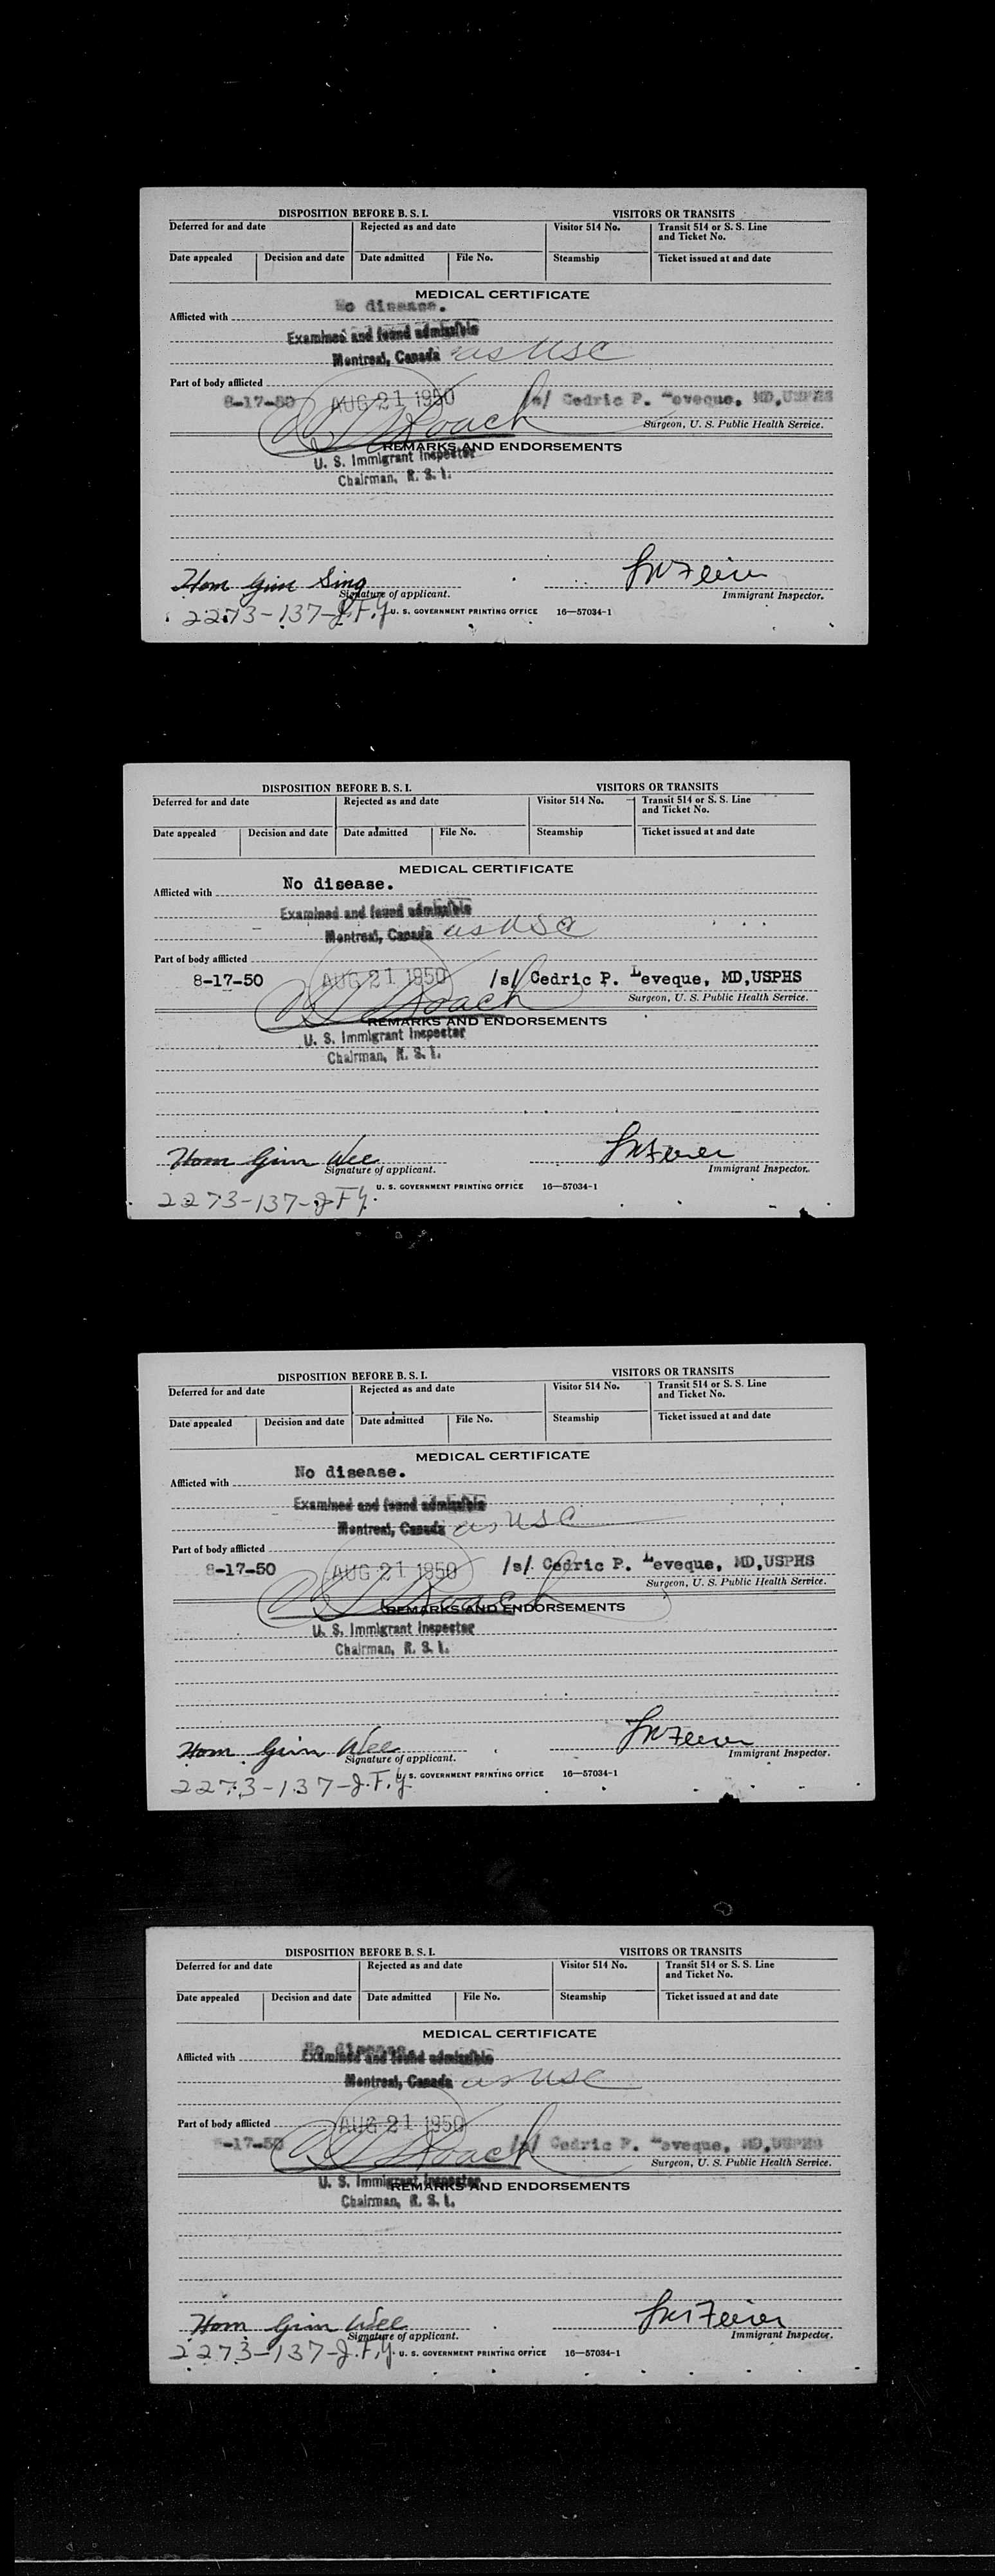 DISPOSITION BEFORE B. S. I. VISITORS OR TRANSITS
Deferred for and date Rejected as and date Visitor 514 No. Transit 514 or S. S. Line
and Ticket No.
Date appealed Decision and date Date admitted File No. Steamship Ticket issued at and date
MEDICAL CERTIFICATE
No disease.
Afflicted with
Examined and found admissible
Montreal, Canada as USC
Part of body afflicted
8-17-50 AUG 21 1950 /s/ Cedric P. Leveque, MD,USPHS
Roach Surgeon, U. S. Public Health Service.
REMARKS AND ENDORSEMENTS
U. S. Immigrant Inspector
Chairman, B. S. I.
Hom Gim Sing
Signature of applicant. Immigrant Inspector.
2273-137-J.F.Y. U. S. GOVERNMENT PRINTING OFFICE 16—57034-1
DISPOSITION BEFORE B. S. I. VISITORS OR TRANSITS
Deferred for and date Rejected as and date Visitor 514 No. Transit 514 or S. S. Line
and Ticket No.
Date appealed Decision and date Date admitted File No. Steamship Ticket issued at and date
MEDICAL CERTIFICATE
No disease.
Afflicted with
Examined and found admissible
Montreal, Canada as USC
Part of body afflicted
8-17-50 AUG 21 1950 /s/ Cedric P. Leveque, MD,USPHS
Roach Surgeon, U. S. Public Health Service.
REMARKS AND ENDORSEMENTS
U. S. Immigrant Inspector
Chairman, B. S. I.
Hom Gim Wee
Signature of applicant. Immigrant Inspector.
U. S. GOVERNMENT PRINTING OFFICE 16—57034-1
2273-137-J.F.Y.
DISPOSITION BEFORE B. S. I. VISITORS OR TRANSITS
Deferred for and date Rejected as and date Visitor 514 No. Transit 514 or S. S. Line
and Ticket No.
Date appealed Decision and date Date admitted File No. Steamship Ticket issued at and date
MEDICAL CERTIFICATE
No disease.
Afflicted with
Examined and found admissible
Montreal, Canada as USC
Part of body afflicted
8-17-50 AUG 21 1950 /s/ Cedric P. Leveque, MD,USPHS
Roach Surgeon, U. S. Public Health Service.
REMARKS AND ENDORSEMENTS
U. S. Immigrant Inspector
Chairman, B. S. I.
Hom Gim Wee
Signature of applicant. Immigrant Inspector.
2273-137-J.F.Y. U. S. GOVERNMENT PRINTING OFFICE 16—57034-1
DISPOSITION BEFORE B. S. I. VISITORS OR TRANSITS
Deferred for and date Rejected as and date Visitor 514 No. Transit 514 or S. S. Line
and Ticket No.
Date appealed Decision and date Date admitted File No. Steamship Ticket issued at and date
MEDICAL CERTIFICATE
No disease.
Afflicted with Examined and found admissible
Montreal, Canada as USC
Part of body afflicted AUG 21 1950
8-17-50 Roach /s/ Cedric P. Leveque, MD,USPHS
Surgeon, U. S. Public Health Service.
U. S. Immigrant Inspector
REMARKS AND ENDORSEMENTS
Chairman, B. S. I.
Hom Gim Wee
Signature of applicant. Immigrant Inspector.
2273-137-J.F.Y. U. S. GOVERNMENT PRINTING OFFICE 16—57034-1